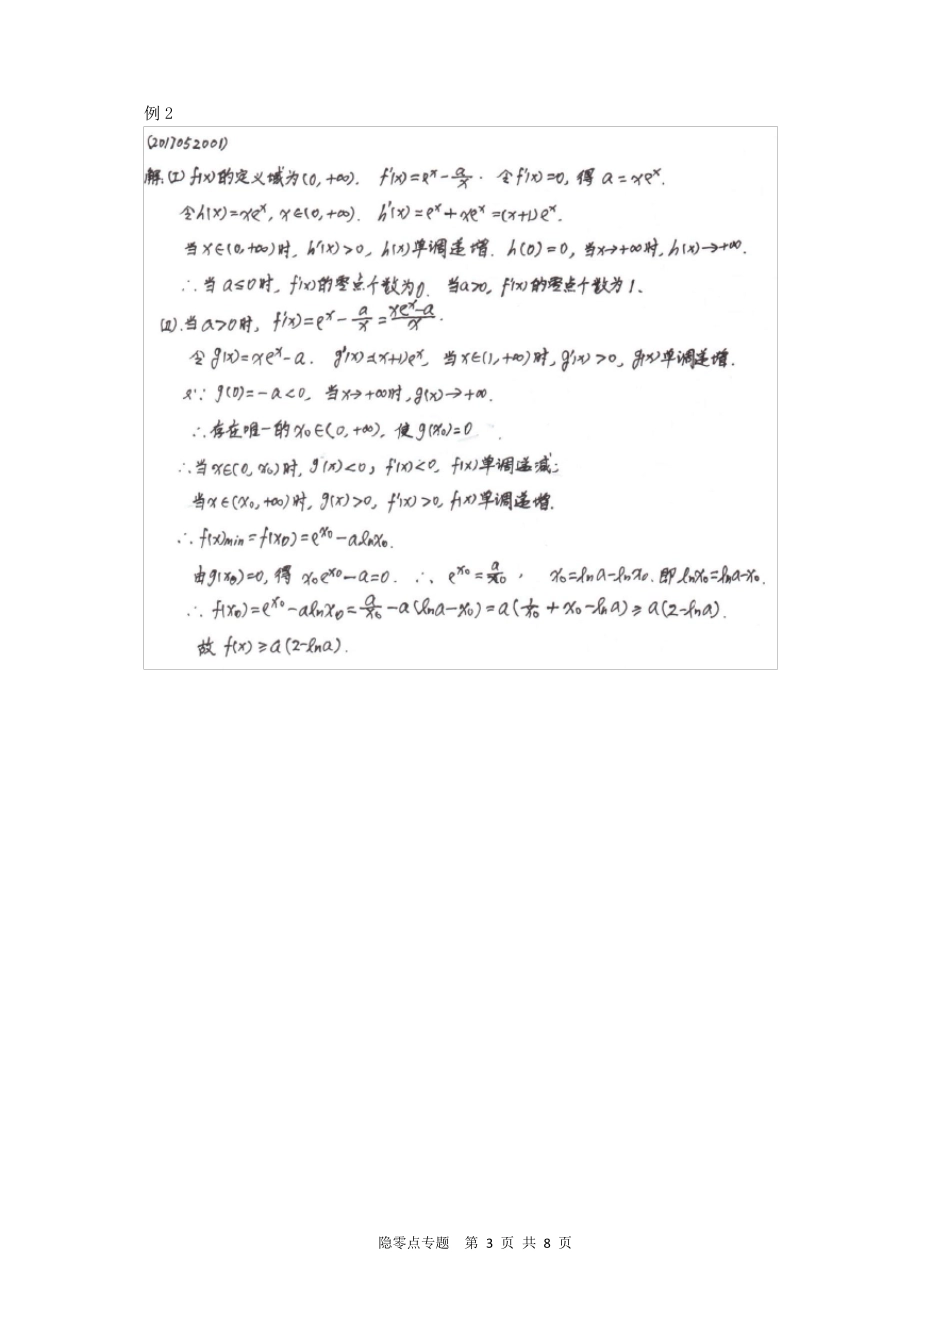 例 2
(2017052001)
解:(I) f(x)的定义域为(0,+∞). f'(x)=e^x-a/x. 令f'(x)=0, 得 a=xe^x.
令h(x)=xe^x, x∈(0,+∞). h'(x)=e^x+xe^x=(x+1)e^x.
当x∈(0,+∞)时, h'(x)>0, h(x)单调递增. h(0)=0, 当x→+∞时, h(x)→+∞.
∴当a≤0时, f'(x)的零点个数为0. 当a>0, f'(x)的零点个数为1.
(II).当a>0时, f'(x)=e^x-a/x=(xe^x-a)/x.
令g(x)=xe^x-a. g'(x)=(x+1)e^x, 当x∈(1,+∞)时, g'(x)>0, g(x)单调递增.
∵g(0)=-a<0, 当x→+∞时, g(x)→+∞.
∴存在唯一的x₀∈(0,+∞), 使g(x₀)=0.
∴当x∈(0,x₀)时, g(x)<0, f'(x)<0, f(x)单调递减;
当x∈(x₀,+∞)时, g(x)>0, f'(x)>0, f(x)单调递增.
∴f(x)min=f(x₀)=e^x₀-alnx₀.
由g(x₀)=0, 得 x₀e^x₀-a=0. ∴e^x₀=a/x₀, x₀=lna-lnx₀. 即lnx₀=lna-x₀.
∴f(x₀)=e^x₀-alnx₀=a/x₀-a(lna-x₀)=a(1/x₀+x₀-lna)≥a(2-lna).
故 f(x)≥a(2-lna).
隐零点专题 第 3 页 共 8 页